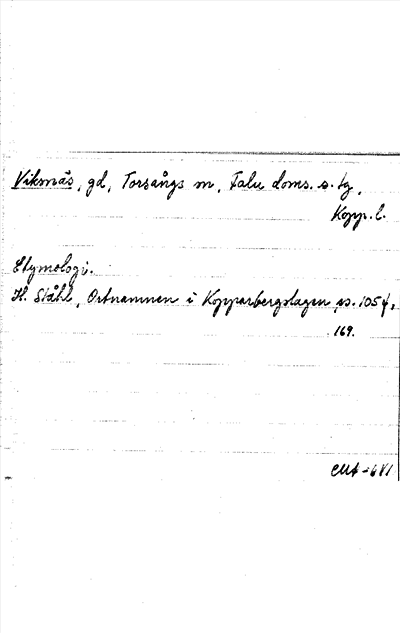 Viksnäs, gd, Torsångs sn, Falu doms. s. tg,
Kopp. l.
Etymologi.
H. Ståhl, Ortnamnen i Kopparbergslagen, s. 105 f,
169.